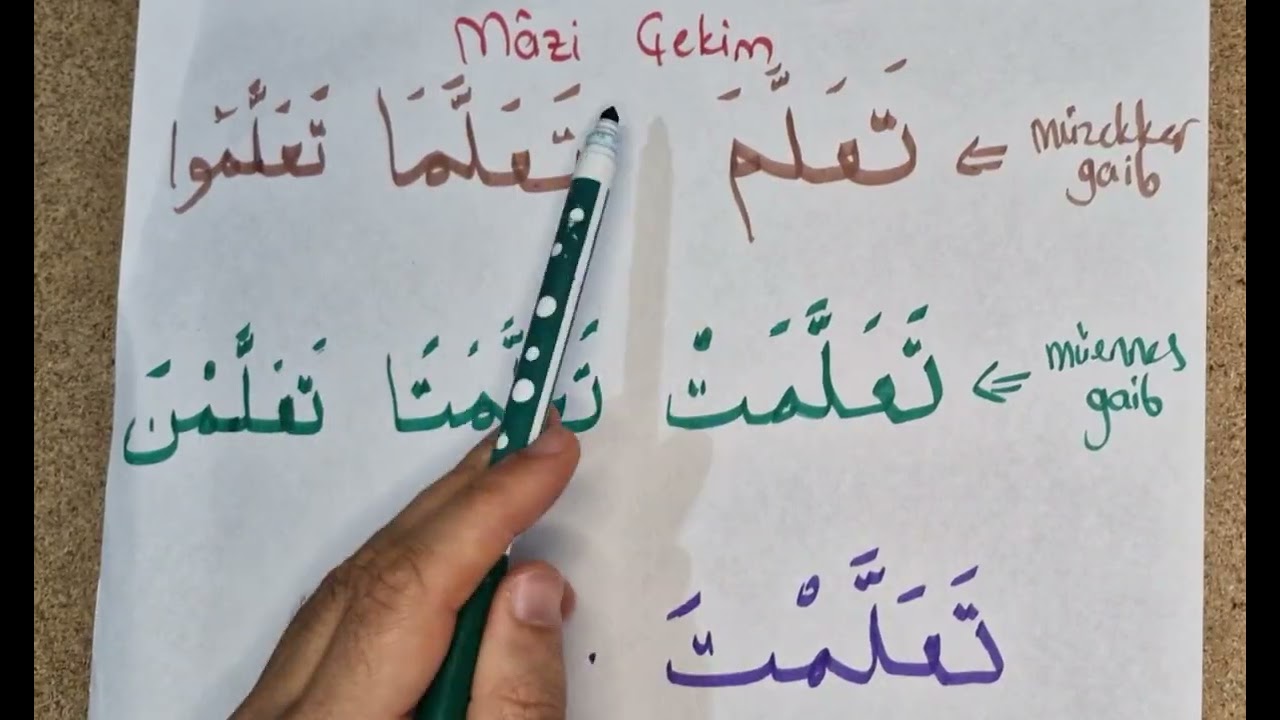 Mâzi Çekim
müzekker
gaib
⇐ تَعَلَّمَ تَعَلَّمَا تَعَلَّمُوا
müennes
gaib
⇐ تَعَلَّمَتْ تَعَلَّمَتَا تَعَلَّمْنَ
تَعَلَّمْتَ